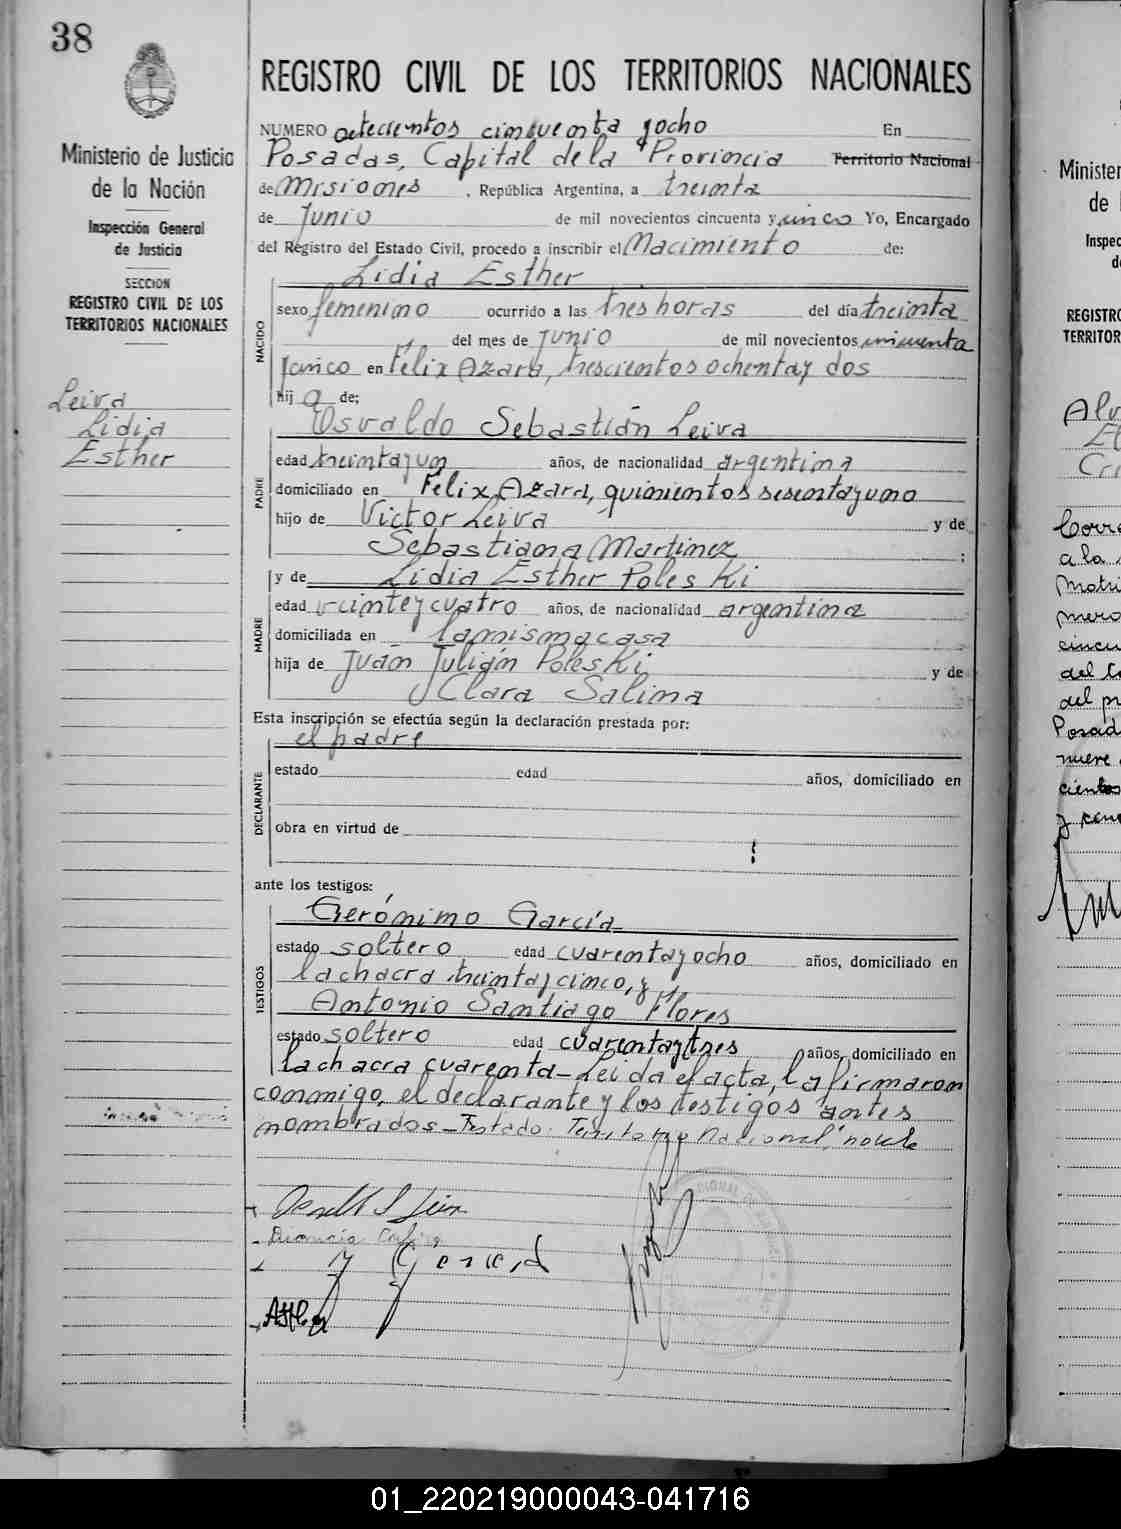 38
Ministerio de Justicia
de la Nación
Inspección General
de Justicia
SECCION
REGISTRO CIVIL DE LOS
TERRITORIOS NACIONALES
Leiva
Lidia
Esther
REGISTRO CIVIL DE LOS TERRITORIOS NACIONALES
NUMERO setecientos cincuenta y ocho En
Posadas, Capital de la Provincia Territorio Nacional
de Misiones, República Argentina, a treinta
de Junio de mil novecientos cincuenta y cinco Yo, Encargado
del Registro del Estado Civil, procedo a inscribir el Nacimiento de:
NACIDO
Lidia Esther
sexo femenino ocurrido a las tres horas del día treinta
del mes de Junio de mil novecientos cincuenta
y cinco en Félix Azara, trescientos ochenta y dos
hij a de:
PADRE
Osvaldo Sebastián Leiva
edad treinta y un años, de nacionalidad argentina
domiciliado en Félix Azara, quinientos sesenta y uno
hijo de Victor Leiva y de
Sebastiana Martinez ;
MADRE
y de Lidia Esther Poleski
edad veinte y cuatro años, de nacionalidad argentina
domiciliada en la misma casa
hija de Juán Julián Poleski y de
Clara Salima
Esta inscripción se efectúa según la declaración prestada por:
DECLARANTE
el padre
estado edad años, domiciliado en
obra en virtud de
;
ante los testigos:
TESTIGOS
Gerónimo García
estado soltero edad cuarenta y ocho años, domiciliado en
la chacra treinta y cinco, y
Antonio Santiago Flores
estado soltero edad cuarenta y tres años, domiciliado en
la chacra cuarenta - Leida el acta, la firmaron
conmigo, el declarante y los testigos antes
nombrados - Testado: Territorio Nacional, no vale
Ministe
de
Inspec
d
REGISTR
TERRITOR
Alv
a la
cincu
del
Posad
y
01_220219000043-041716